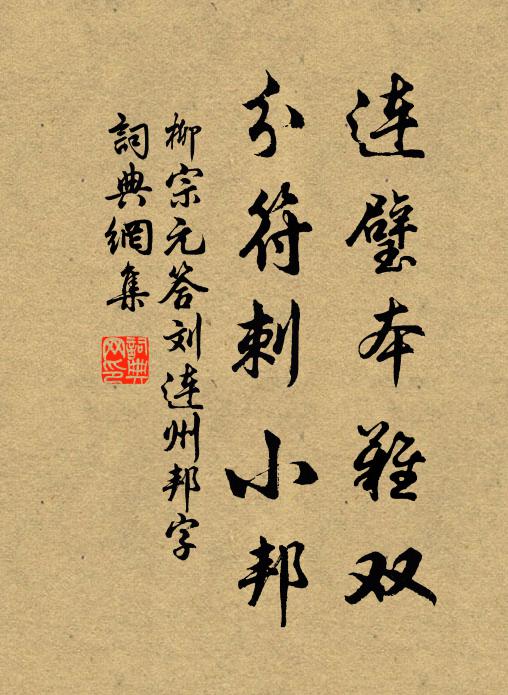 连璧本难双
分符刺小邦
柳宗元答刘连州邦字
詞典網集
詞典
网印